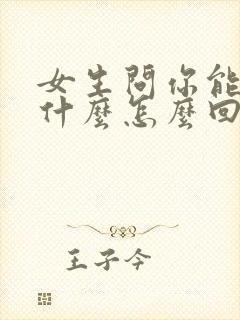 女生問你能
什麼怎麼回
王子今